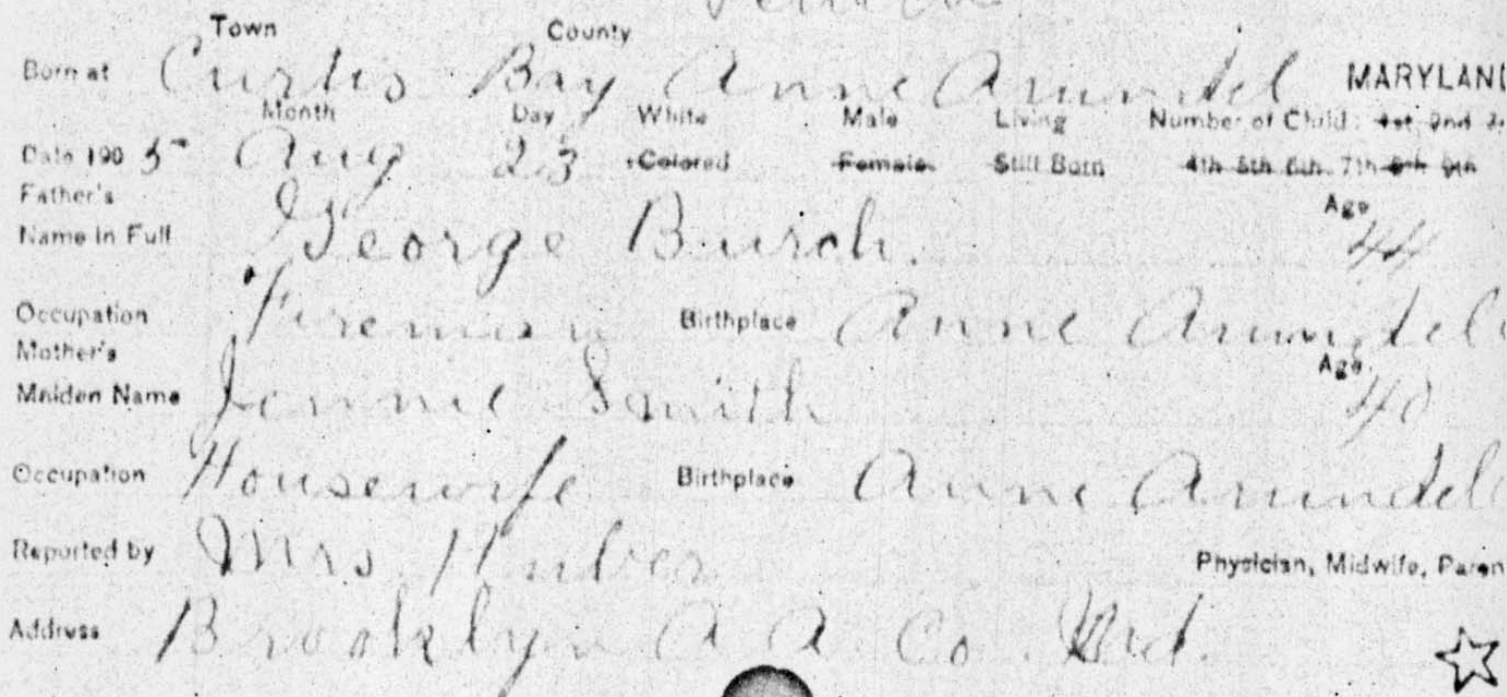 Town County
Born at Curtis Bay Anne Arundel MARYLAND
Month Day White Male Living Number of Child: 1st 2nd
Date 1905 Aug 23 Colored Female Still Born 4th 5th 6th 7th 8th 9th
Father's Age
Name in Full George Burch. 44
Occupation Fireman Birthplace Anne Arundell
Mother's Age
Maiden Name Jennie Smith 40
Occupation Housewife Birthplace Anne Arundell
Reported by Mrs. Huber Physician, Midwife, Paren
Address Brooklyn A A Co. Md.